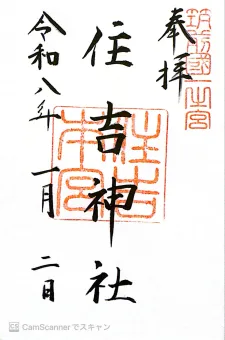 奉拝
筑前國一之宮
住吉神社
住吉本宮
令和八年 一月 二日
CS CamScanner でスキャン